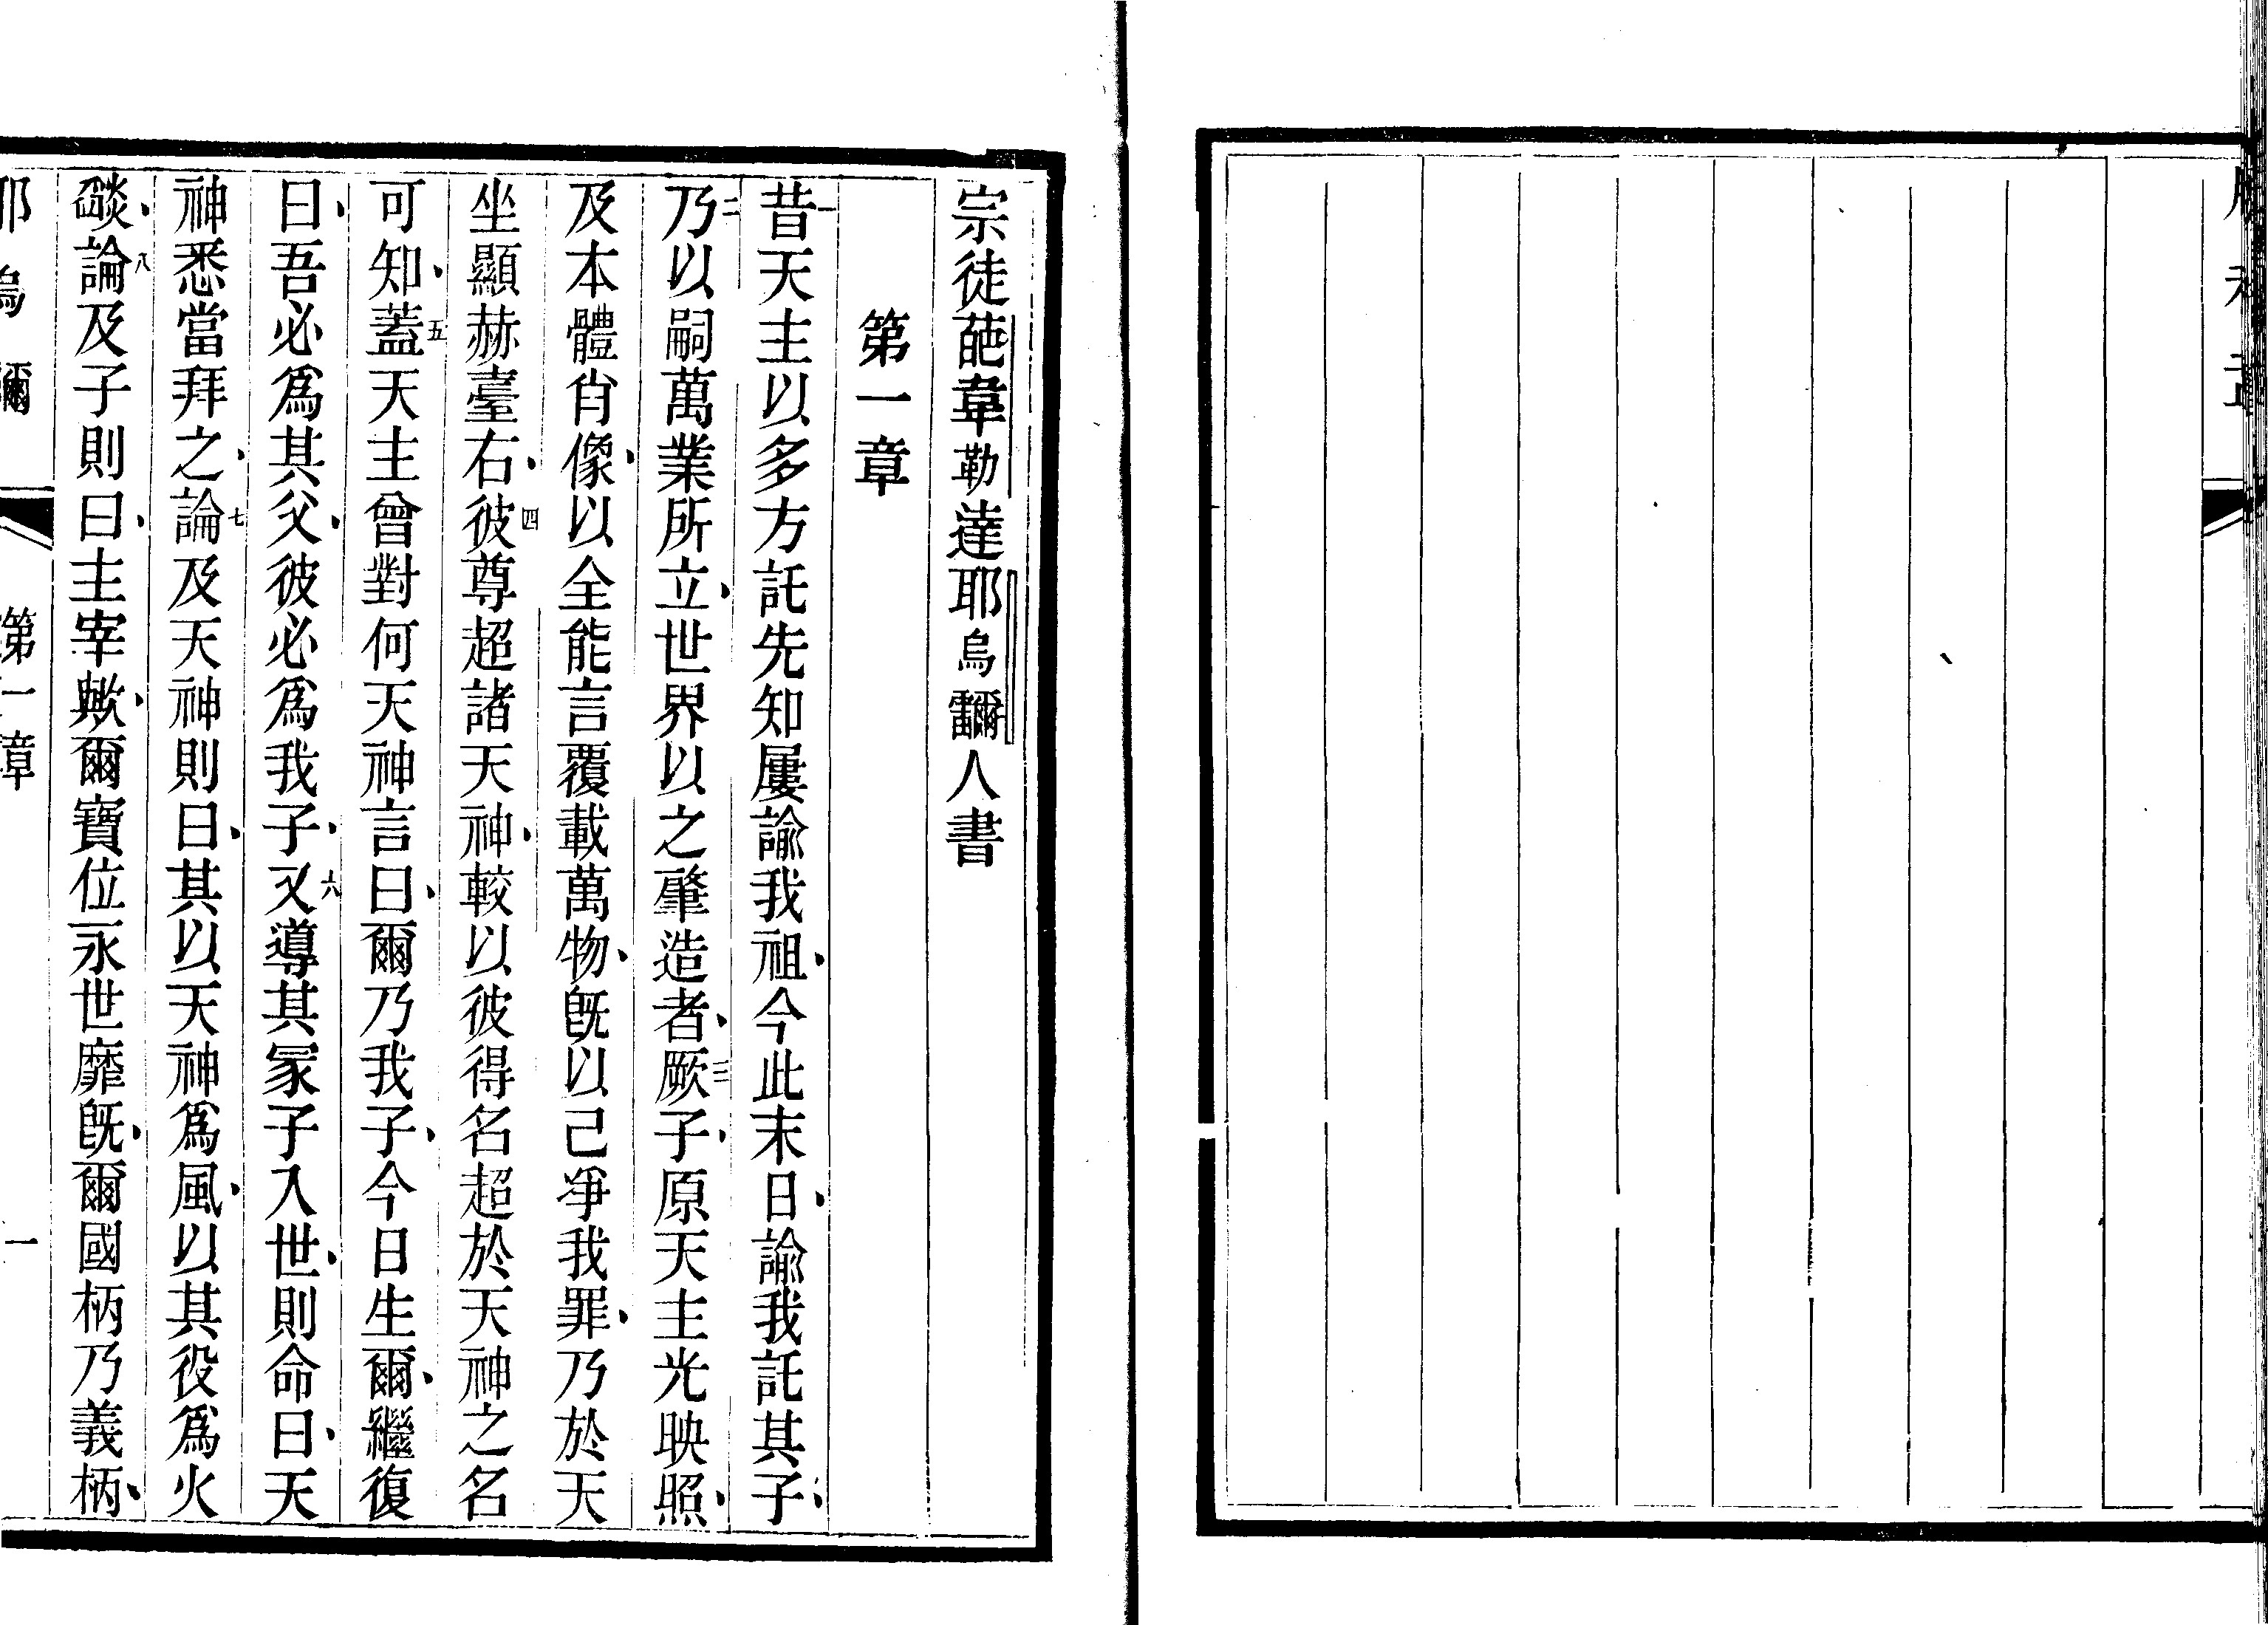 宗徒葩韋勒達耶烏䨲人書
第一章
一昔天主以多方託先知屢諭我祖、今此末日、諭我託其子、
二乃以嗣萬業所立、世界以之肇造者、三厥子、原天主光映照、
及本體肖像、以全能言覆載萬物、既以己爭我罪、乃於天
坐顯赫臺右、四彼尊超諸天神、較以彼得名超於天神之名
可知、五蓋天主曾對何天神言曰、爾乃我子、今日生爾、繼復
曰、吾必爲其父、彼必爲我子、六又導其冢子入世、則命曰、天
神悉當拜之、七論及天神則曰、其以天神爲風、以其役爲火
燄、八論及子則曰、主宰歟、爾寶位永世靡既、爾國柄乃義柄、
耶烏䨲 第一章 一